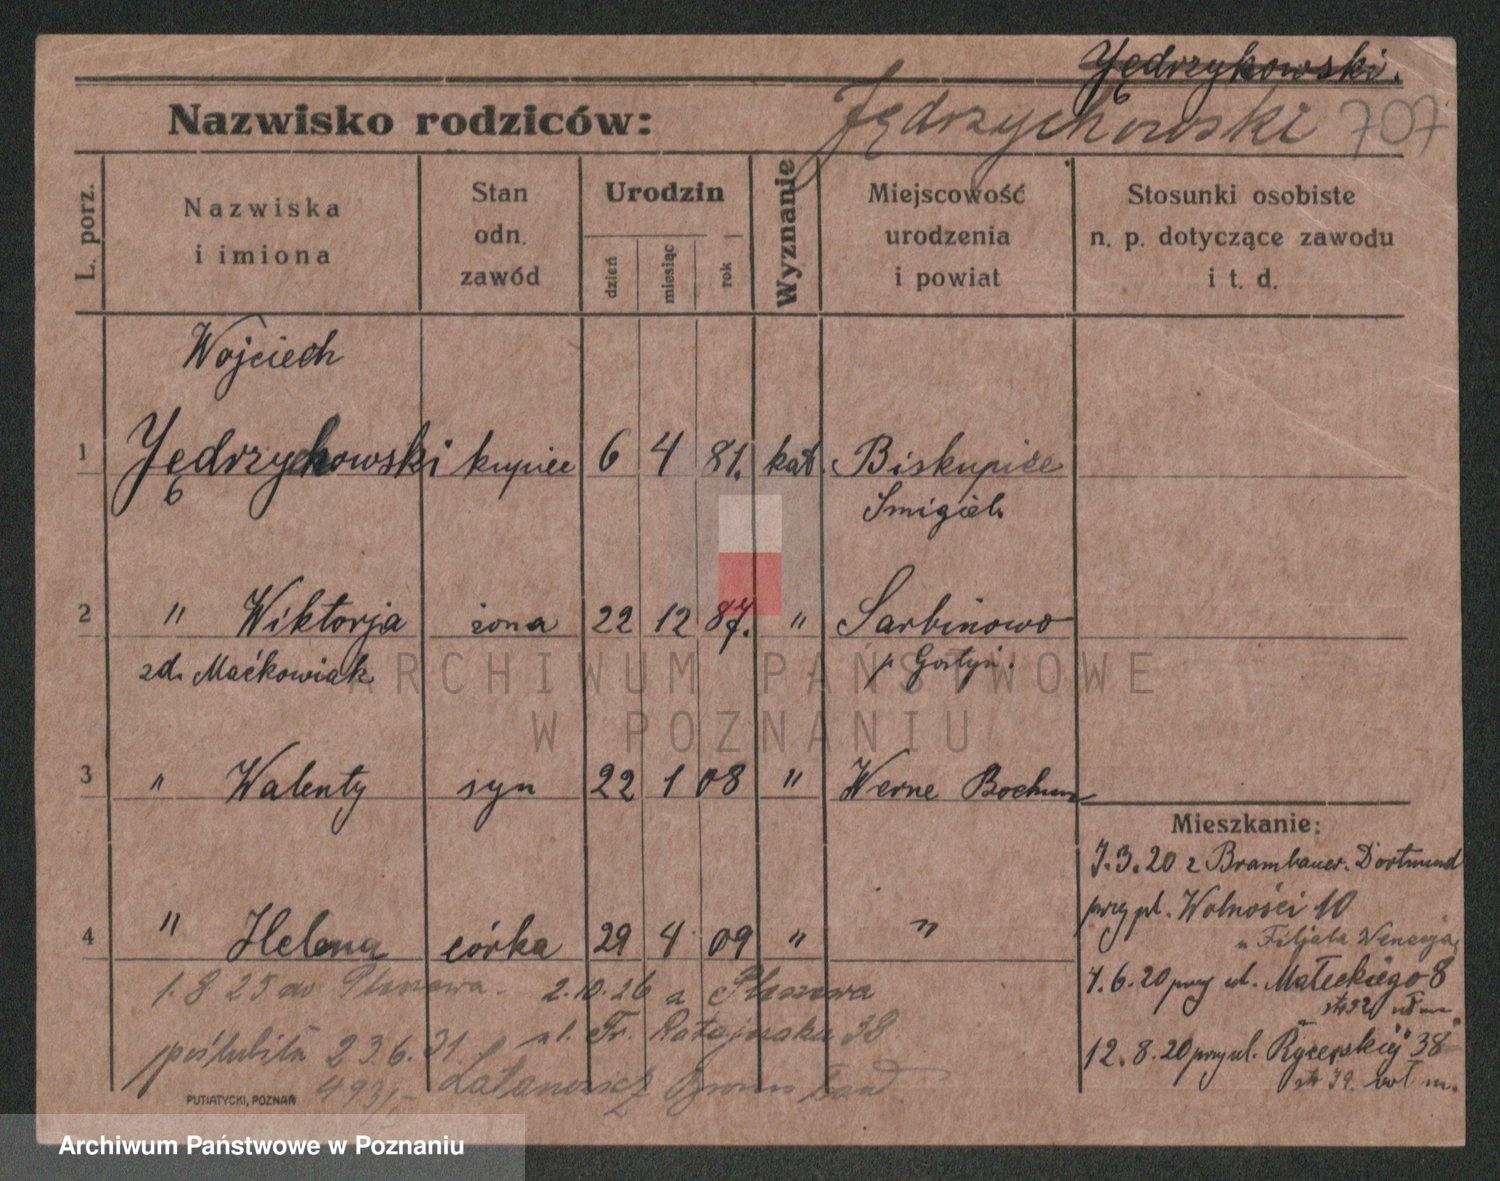 Jędrzykowski.
Nazwisko rodziców: Jędrzychowski 707
L. porz.
Nazwiska i imiona
Stan odn. zawód
Urodzin
dzień miesiąc rok
Wyznanie
Miejscowość urodzenia i powiat
Stosunki osobiste n. p. dotyczące zawodu i t. d.
Wojciech
1 Jędrzychowski kupiec 6 4 81. kat. Biskupice
Smigiel.
2 " Wiktorja żona 22 12 87. " Sarbinowo
zd. Maćkowiak p Gostyń.
3 " Walenty syn 22 1 08 " Werne Bochum
4 " Helena córka 29 4 09 " "
1.8 25 do Pleszewa - 2.10.26 a Pleszewa
poślubiła 23.6.31. ul. Fr. Ratajczaka 38
493 Latanowicz
Mieszkanie:
7.3.20 z Brambauer. Dortmund
przy pl. Wolności 10
u Filjala Wenecja
7.6.20 przy ul. Małeckiego 8
12.8.20 przy ul. Rycerskiej 38
PUTIATYCKI, POZNAŃ
ARCHIWUM PAŃSTWOWE
W POZNANIU
Archiwum Państwowe w Poznaniu